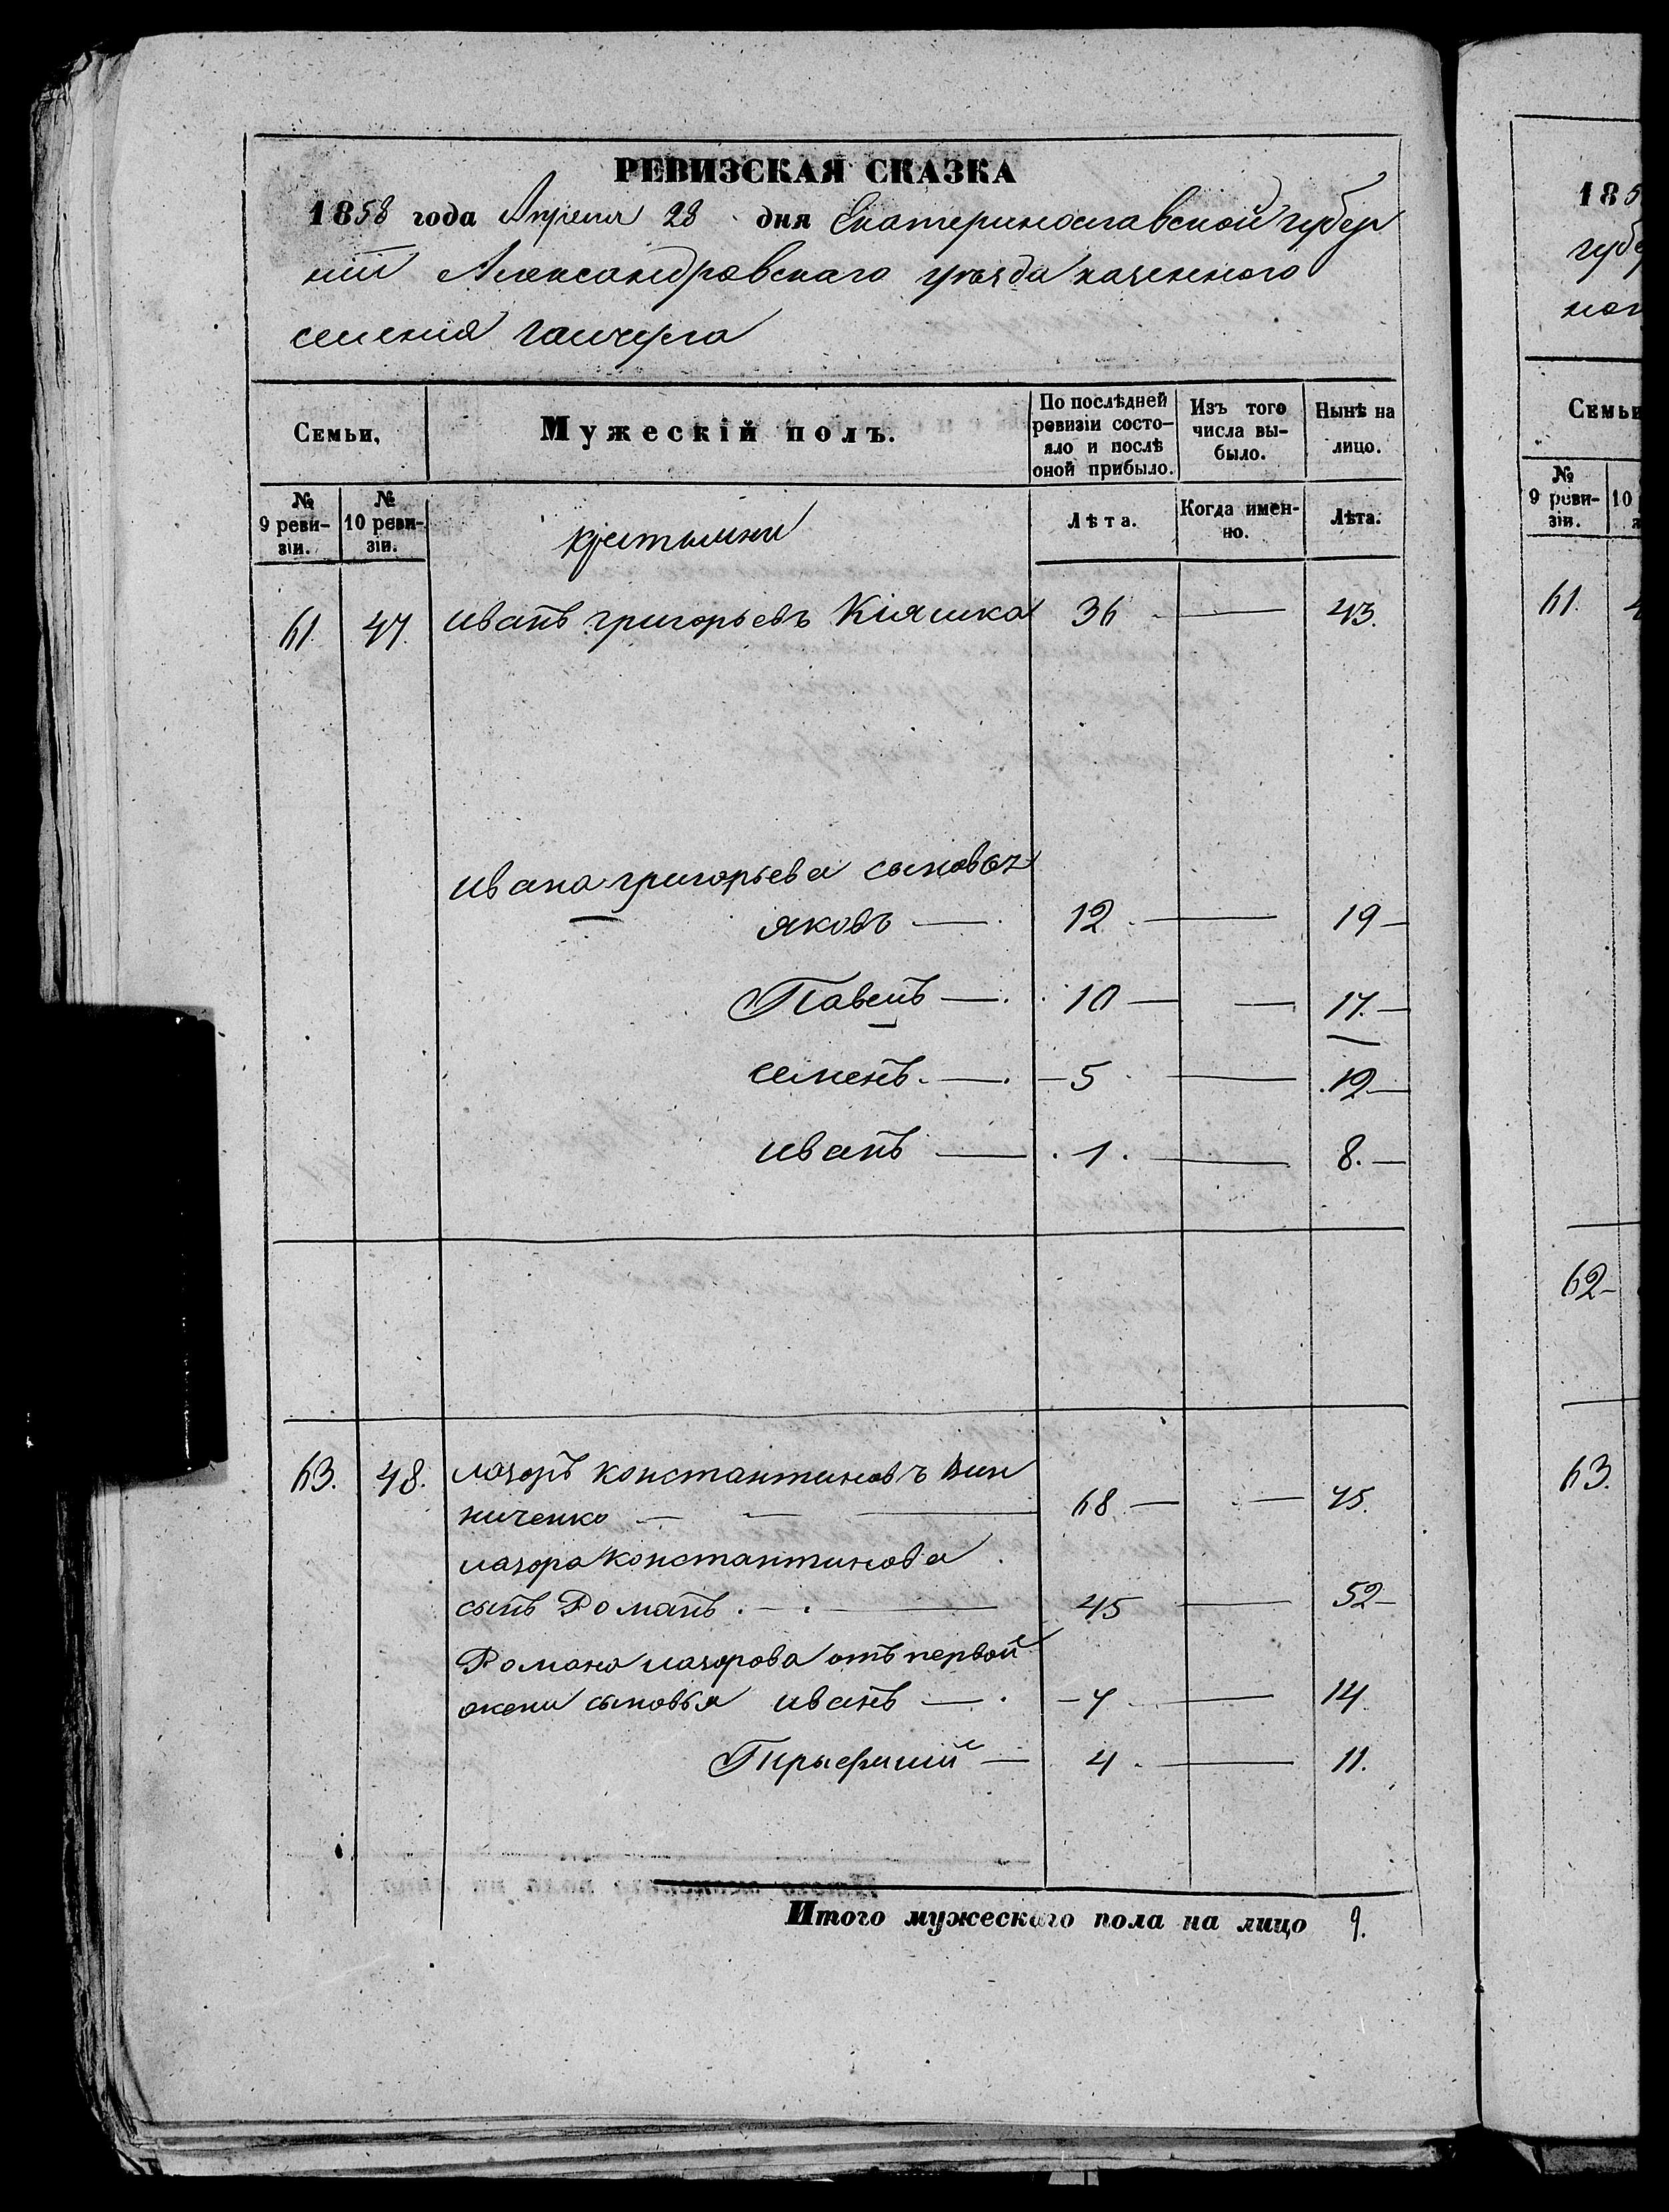 РЕВИЗСКАЯ СКАЗКА
1858 года Апреля 28 дня Екатеринославской губер
нии Александровскаго уѣзда казенного
селения Гайчура
Семьи,
Мужескій полъ.
По послѣдней ревизіи состо-яло и послѣ оной прибыло.
Изъ того числа вы-было.
Нынѣ на лицо.
№ 9 реви-зіи.
№ 10 реви-зіи.
крестьяни
Лѣта.
Когда имен-но.
Лѣта.
61. 47. иванъ григорьевъ Кіяшка 36 — 43.
ивана григорьева сыновья
яковъ — 12 — 19 —
Павелъ — 10 — — 17. —
семенъ. — 5 — 12 —
иванъ — 1. — 8. —
63. 48. лазоръ константиновъ Вин
ниченко — — — 68 — — 75.
лазора константинова
сынъ Романъ. — 45 — 52 —
Романа лазорова отъ первой
жени сыновья иванъ — 7 — 14
— 4 — 11.
Итого мужескаго пола на лицо 9.
185
губе
Семьи
№ 9 реви-зіи.
10
61.
62 —
63.